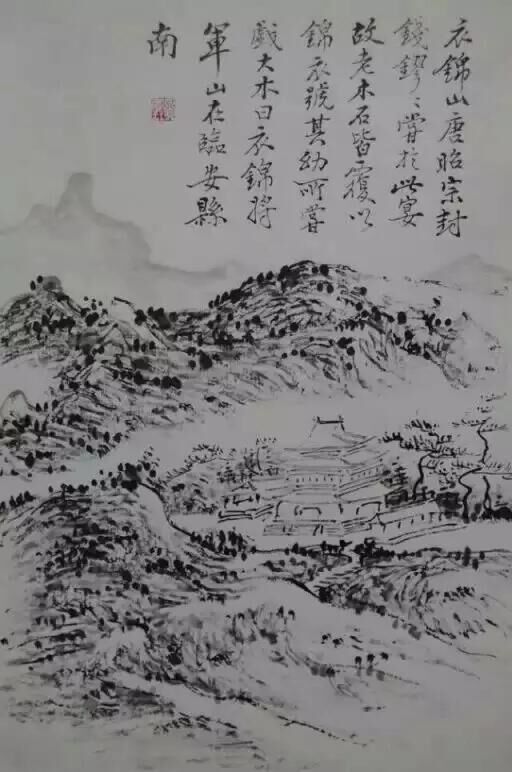 衣錦山唐昭宗封
錢鏐〻嘗於此宴
故老木石皆覆以
錦衣號其幼所嘗
戲大木曰衣錦將
軍山在臨安縣
南